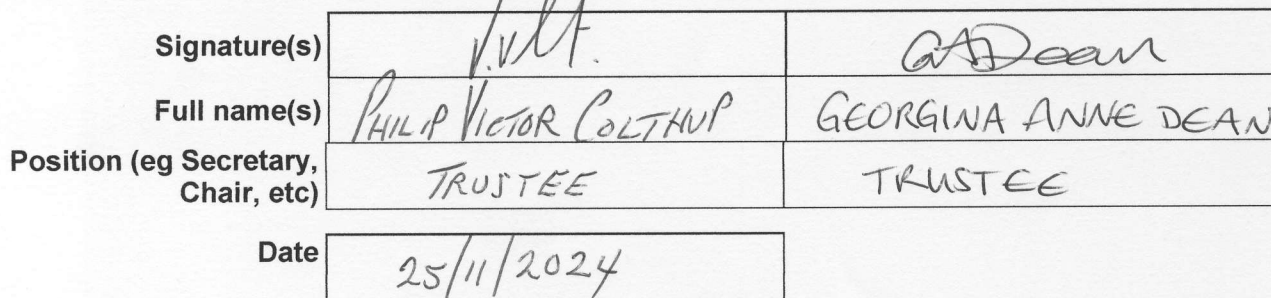 Signature(s) GADean
Full name(s) PHILIP VICTOR COLTHUP GEORGINA ANNE DEAN
Position (eg Secretary,
Chair, etc) TRUSTEE TRUSTEE
Date 25/11/2024